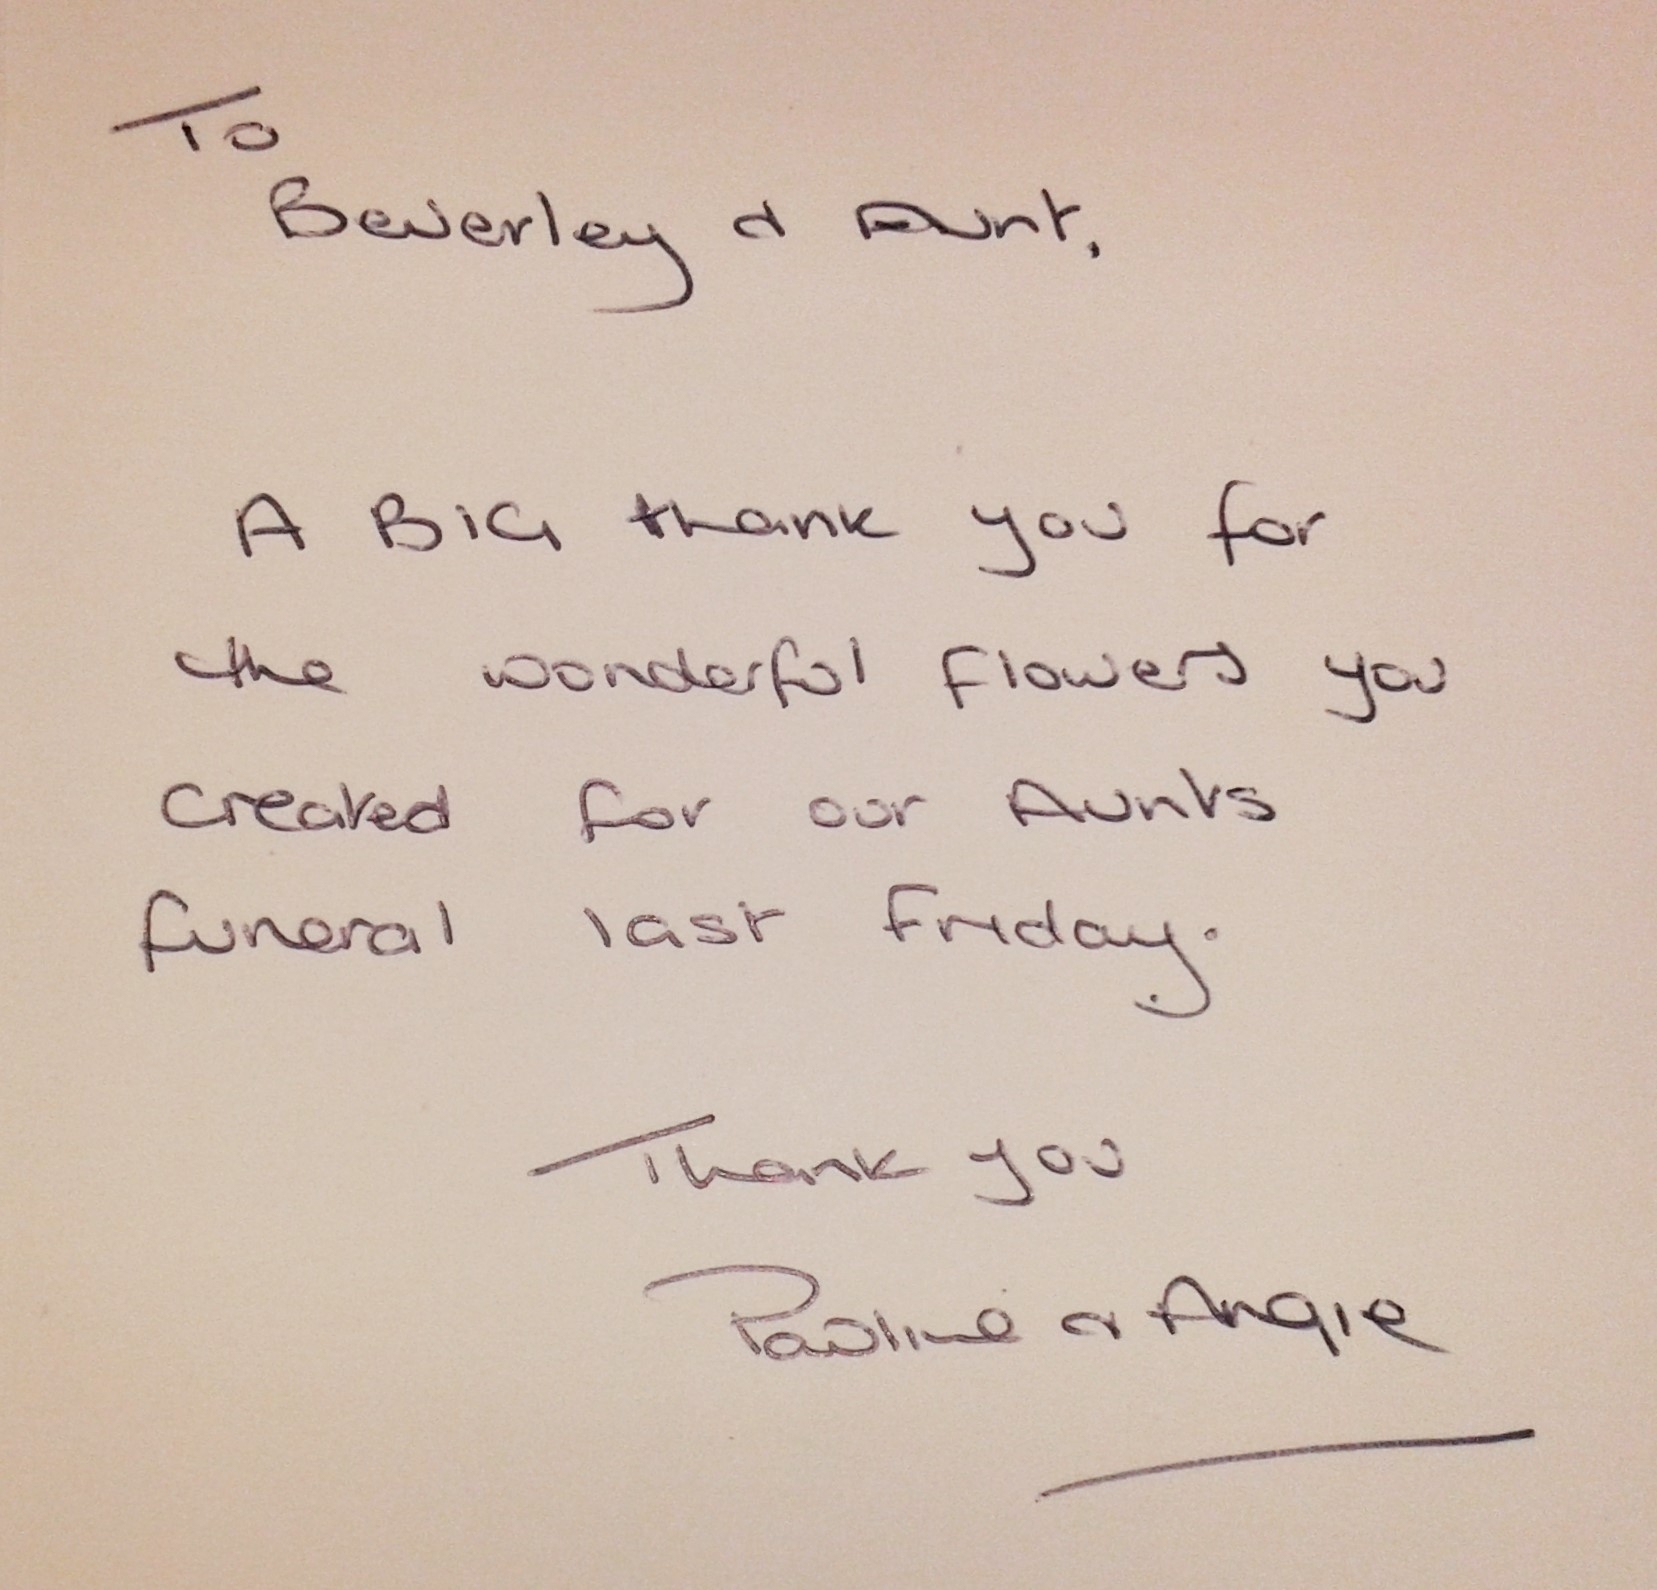 To
Beverley & Aunt,
A BIG thank you for
the wonderful flowers you
created for our Aunts
funeral last Friday.
Thank you
Pauline & Angie